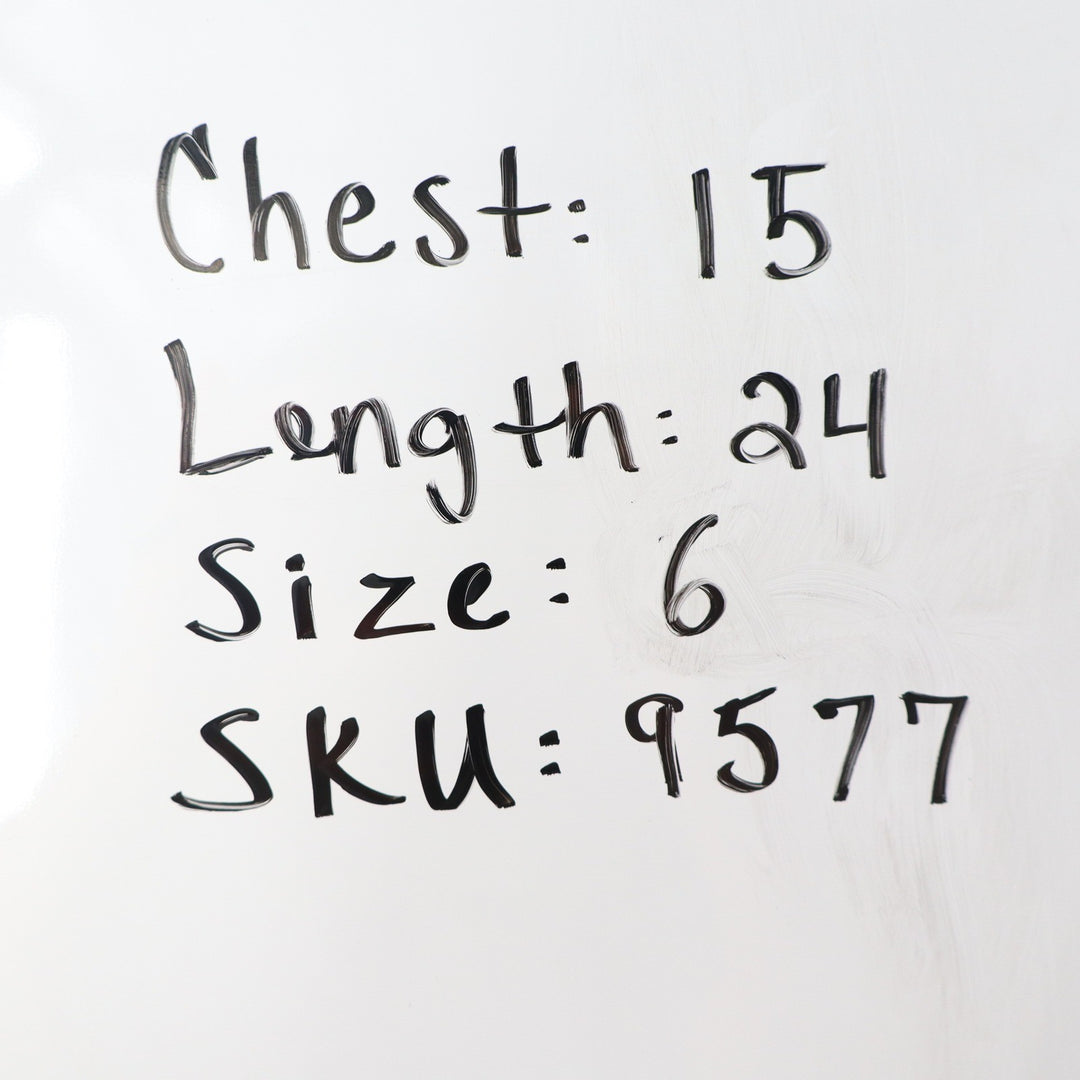 Chest: 15
Length: 24
Size: 6
SKU: 9577